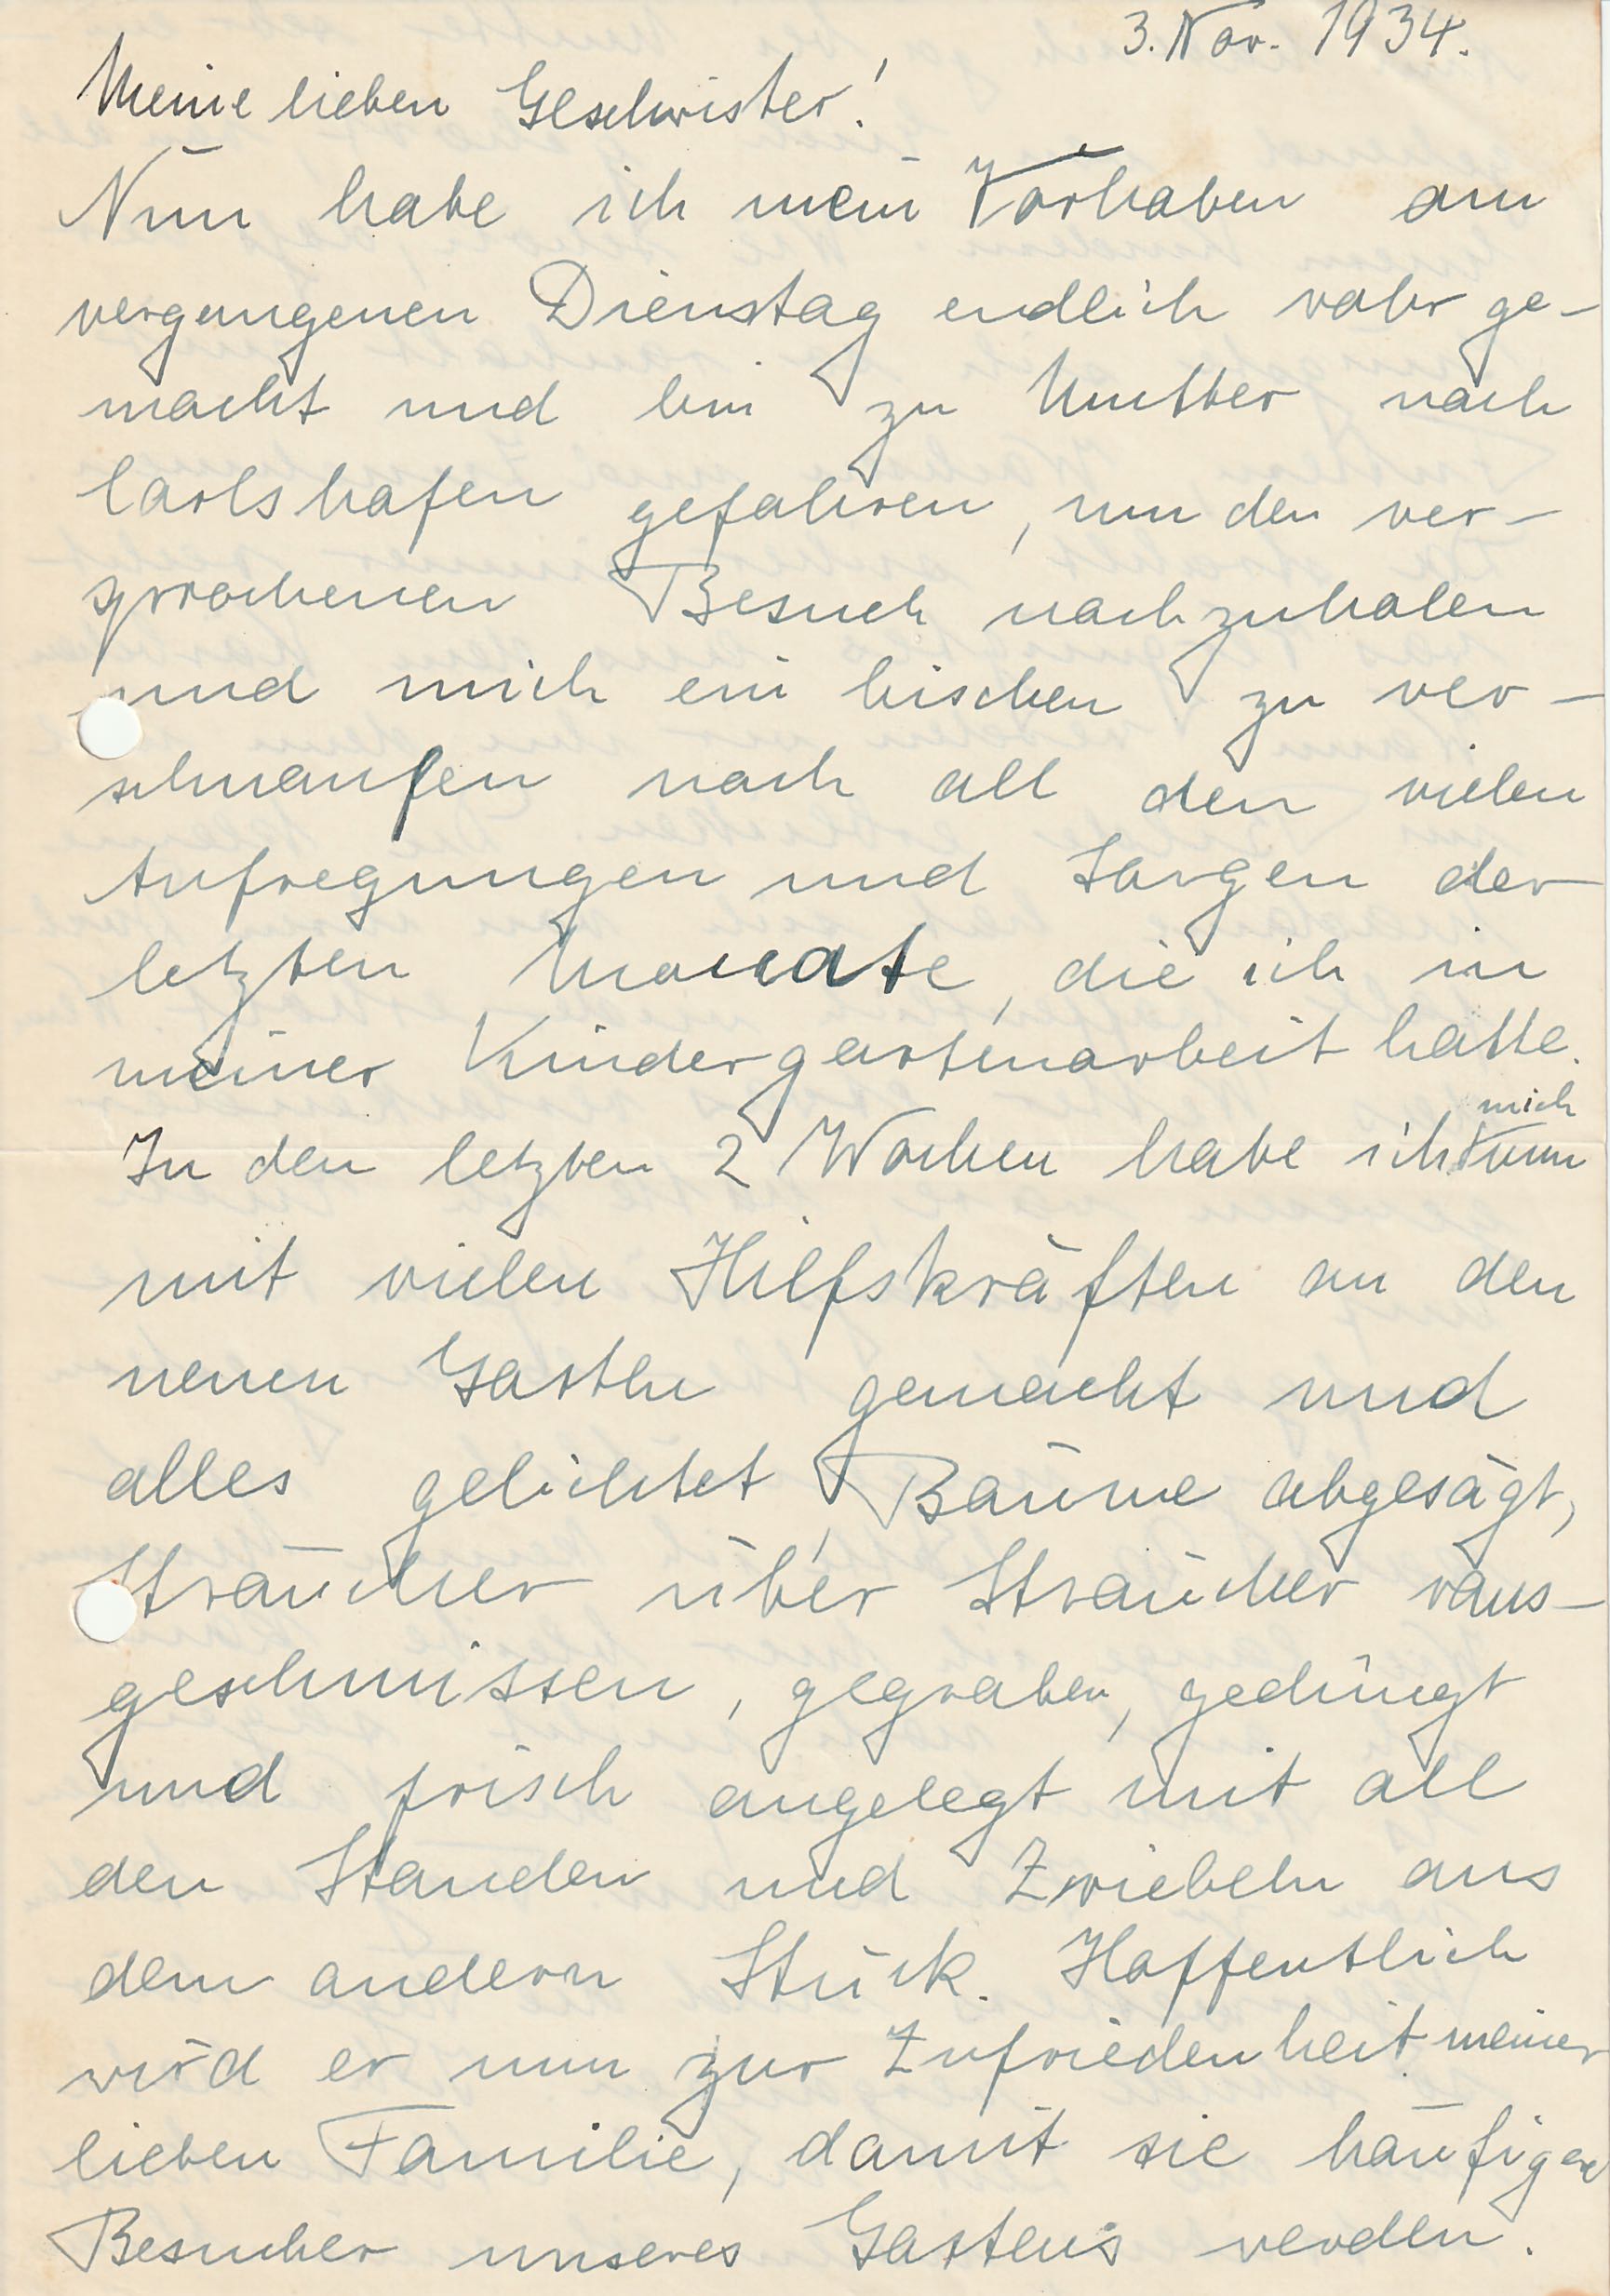 3. Nov. 1934.
Meine lieben Geschwister!
Nun habe ich mein Vorhaben am
vergangenen Dienstag endlich wahr ge-
macht und bin zu Mutter nach
Carlshafen gefahren, um den ver-
sprochenen Besuch nachzuholen
und mich ein bischen zu ver-
schnaufen nach all den vielen
Aufregungen und Sorgen der
letzten Monate, die ich in
meiner Kindergartenarbeit hatte.
In den letzten 2 Wochen habe ich mich nun
mit vielen Hilfskräften an den
neuen Garten gemacht und
alles gelichtet, Bäume abgesägt,
Sträucher über Sträucher raus-
geschmissen, gegraben, gedüngt
und frisch angelegt mit all
den Stauden und Zwiebeln aus
dem andern Stück. Hoffentlich
wird er nun zur Zufriedenheit meiner
lieben Familie, damit sie häufigere
Besucher unseres Gartens werden.